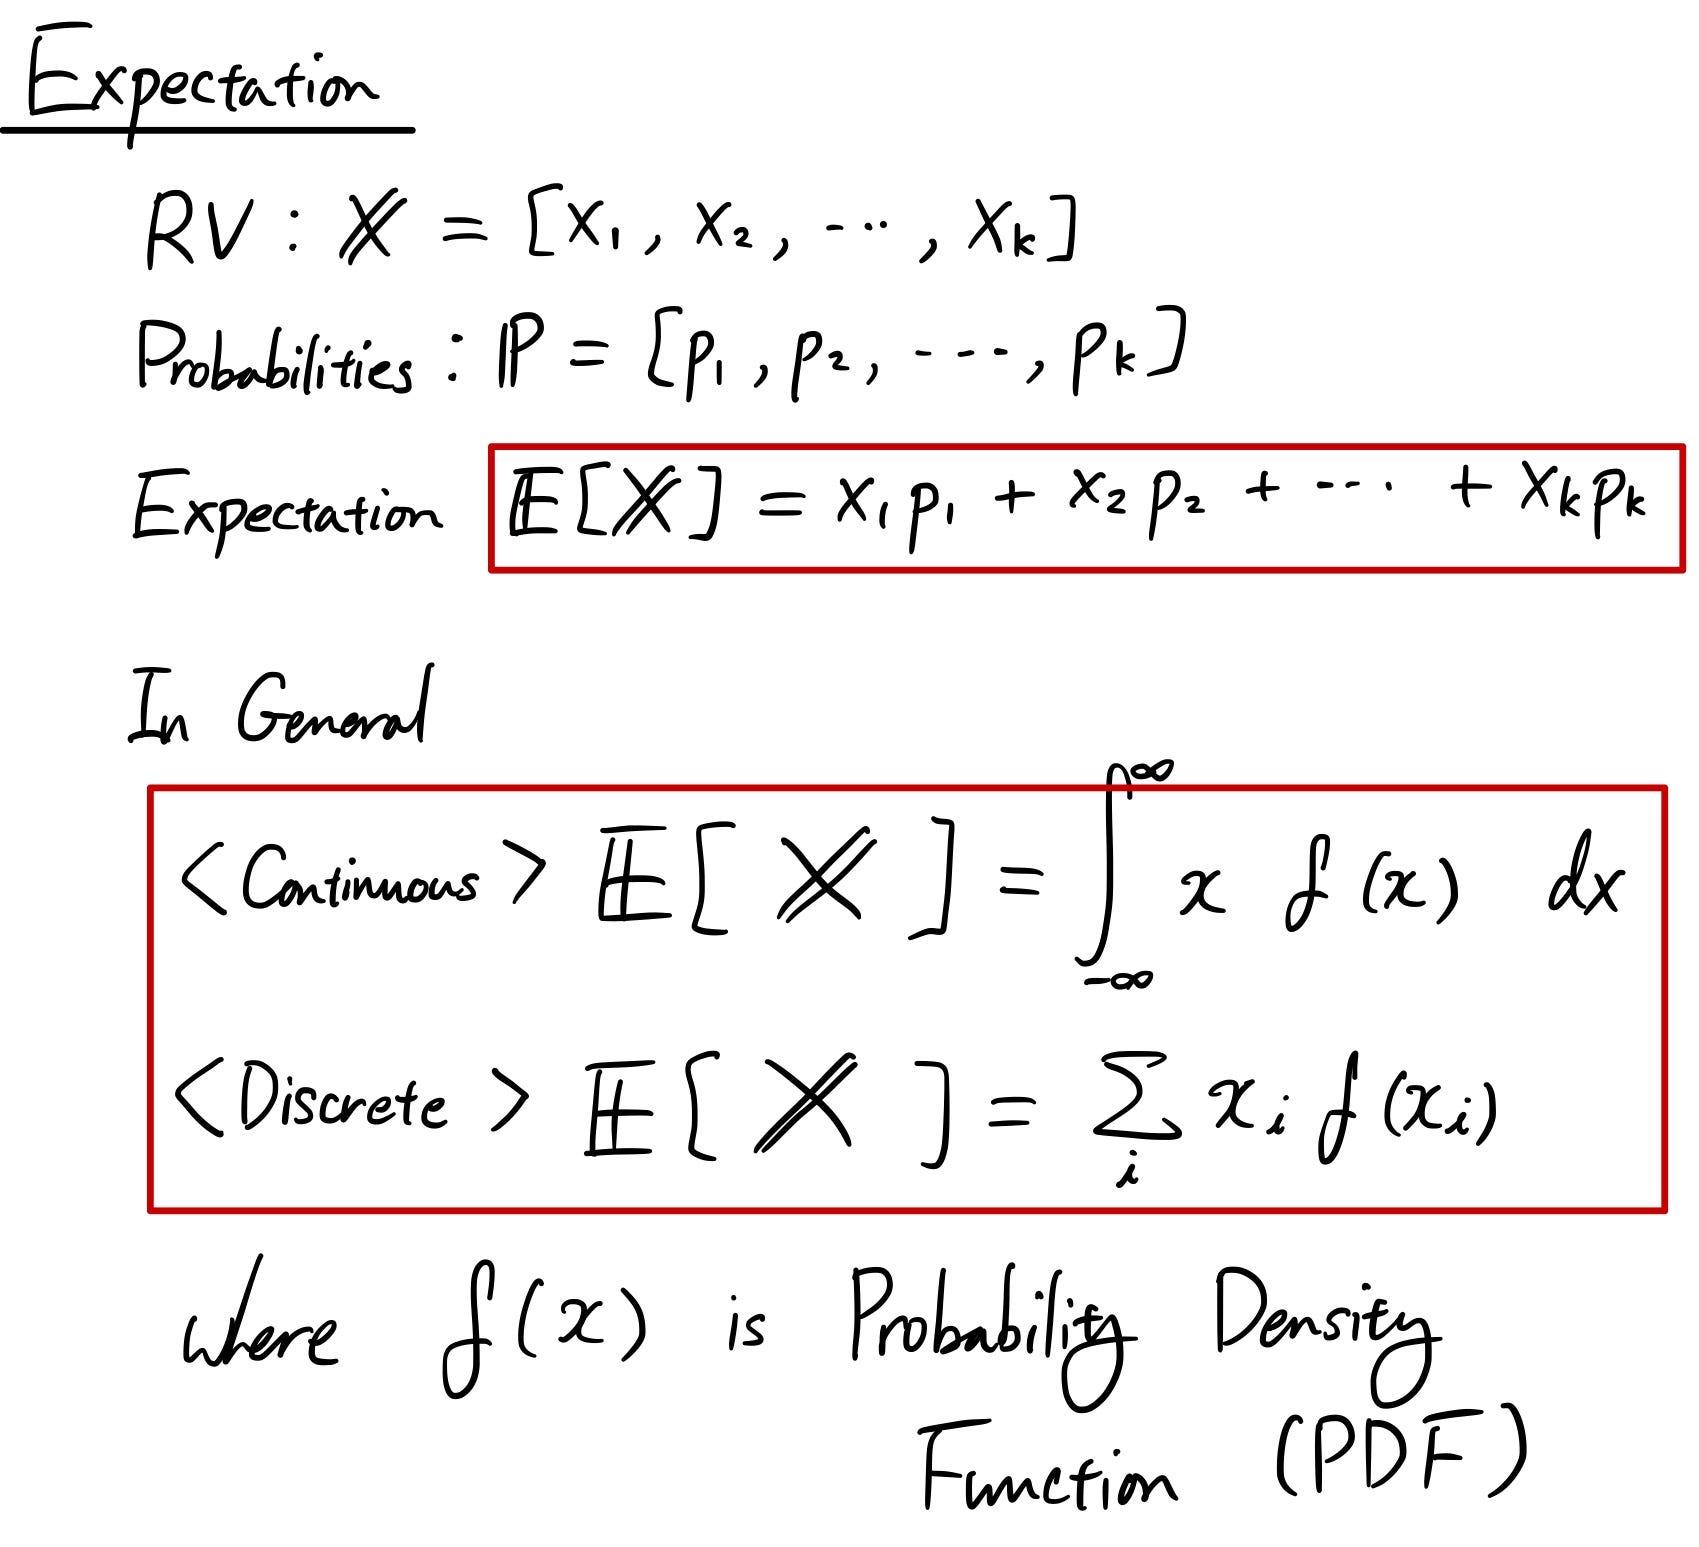 Expectation
RV : 𝕏 = [x₁, x₂, ..., xₖ]
Probabilities : ℙ = [p₁, p₂, ..., pₖ]
Expectation 𝔼[𝕏] = x₁p₁ + x₂p₂ + ... + xₖpₖ
In General
<Continuous> 𝔼[𝕏] = ∫_{-∞}^{∞} x f(x) dx
<Discrete> 𝔼[𝕏] = Σ_i x_i f(x_i)
where f(x) is Probability Density
Function (PDF)